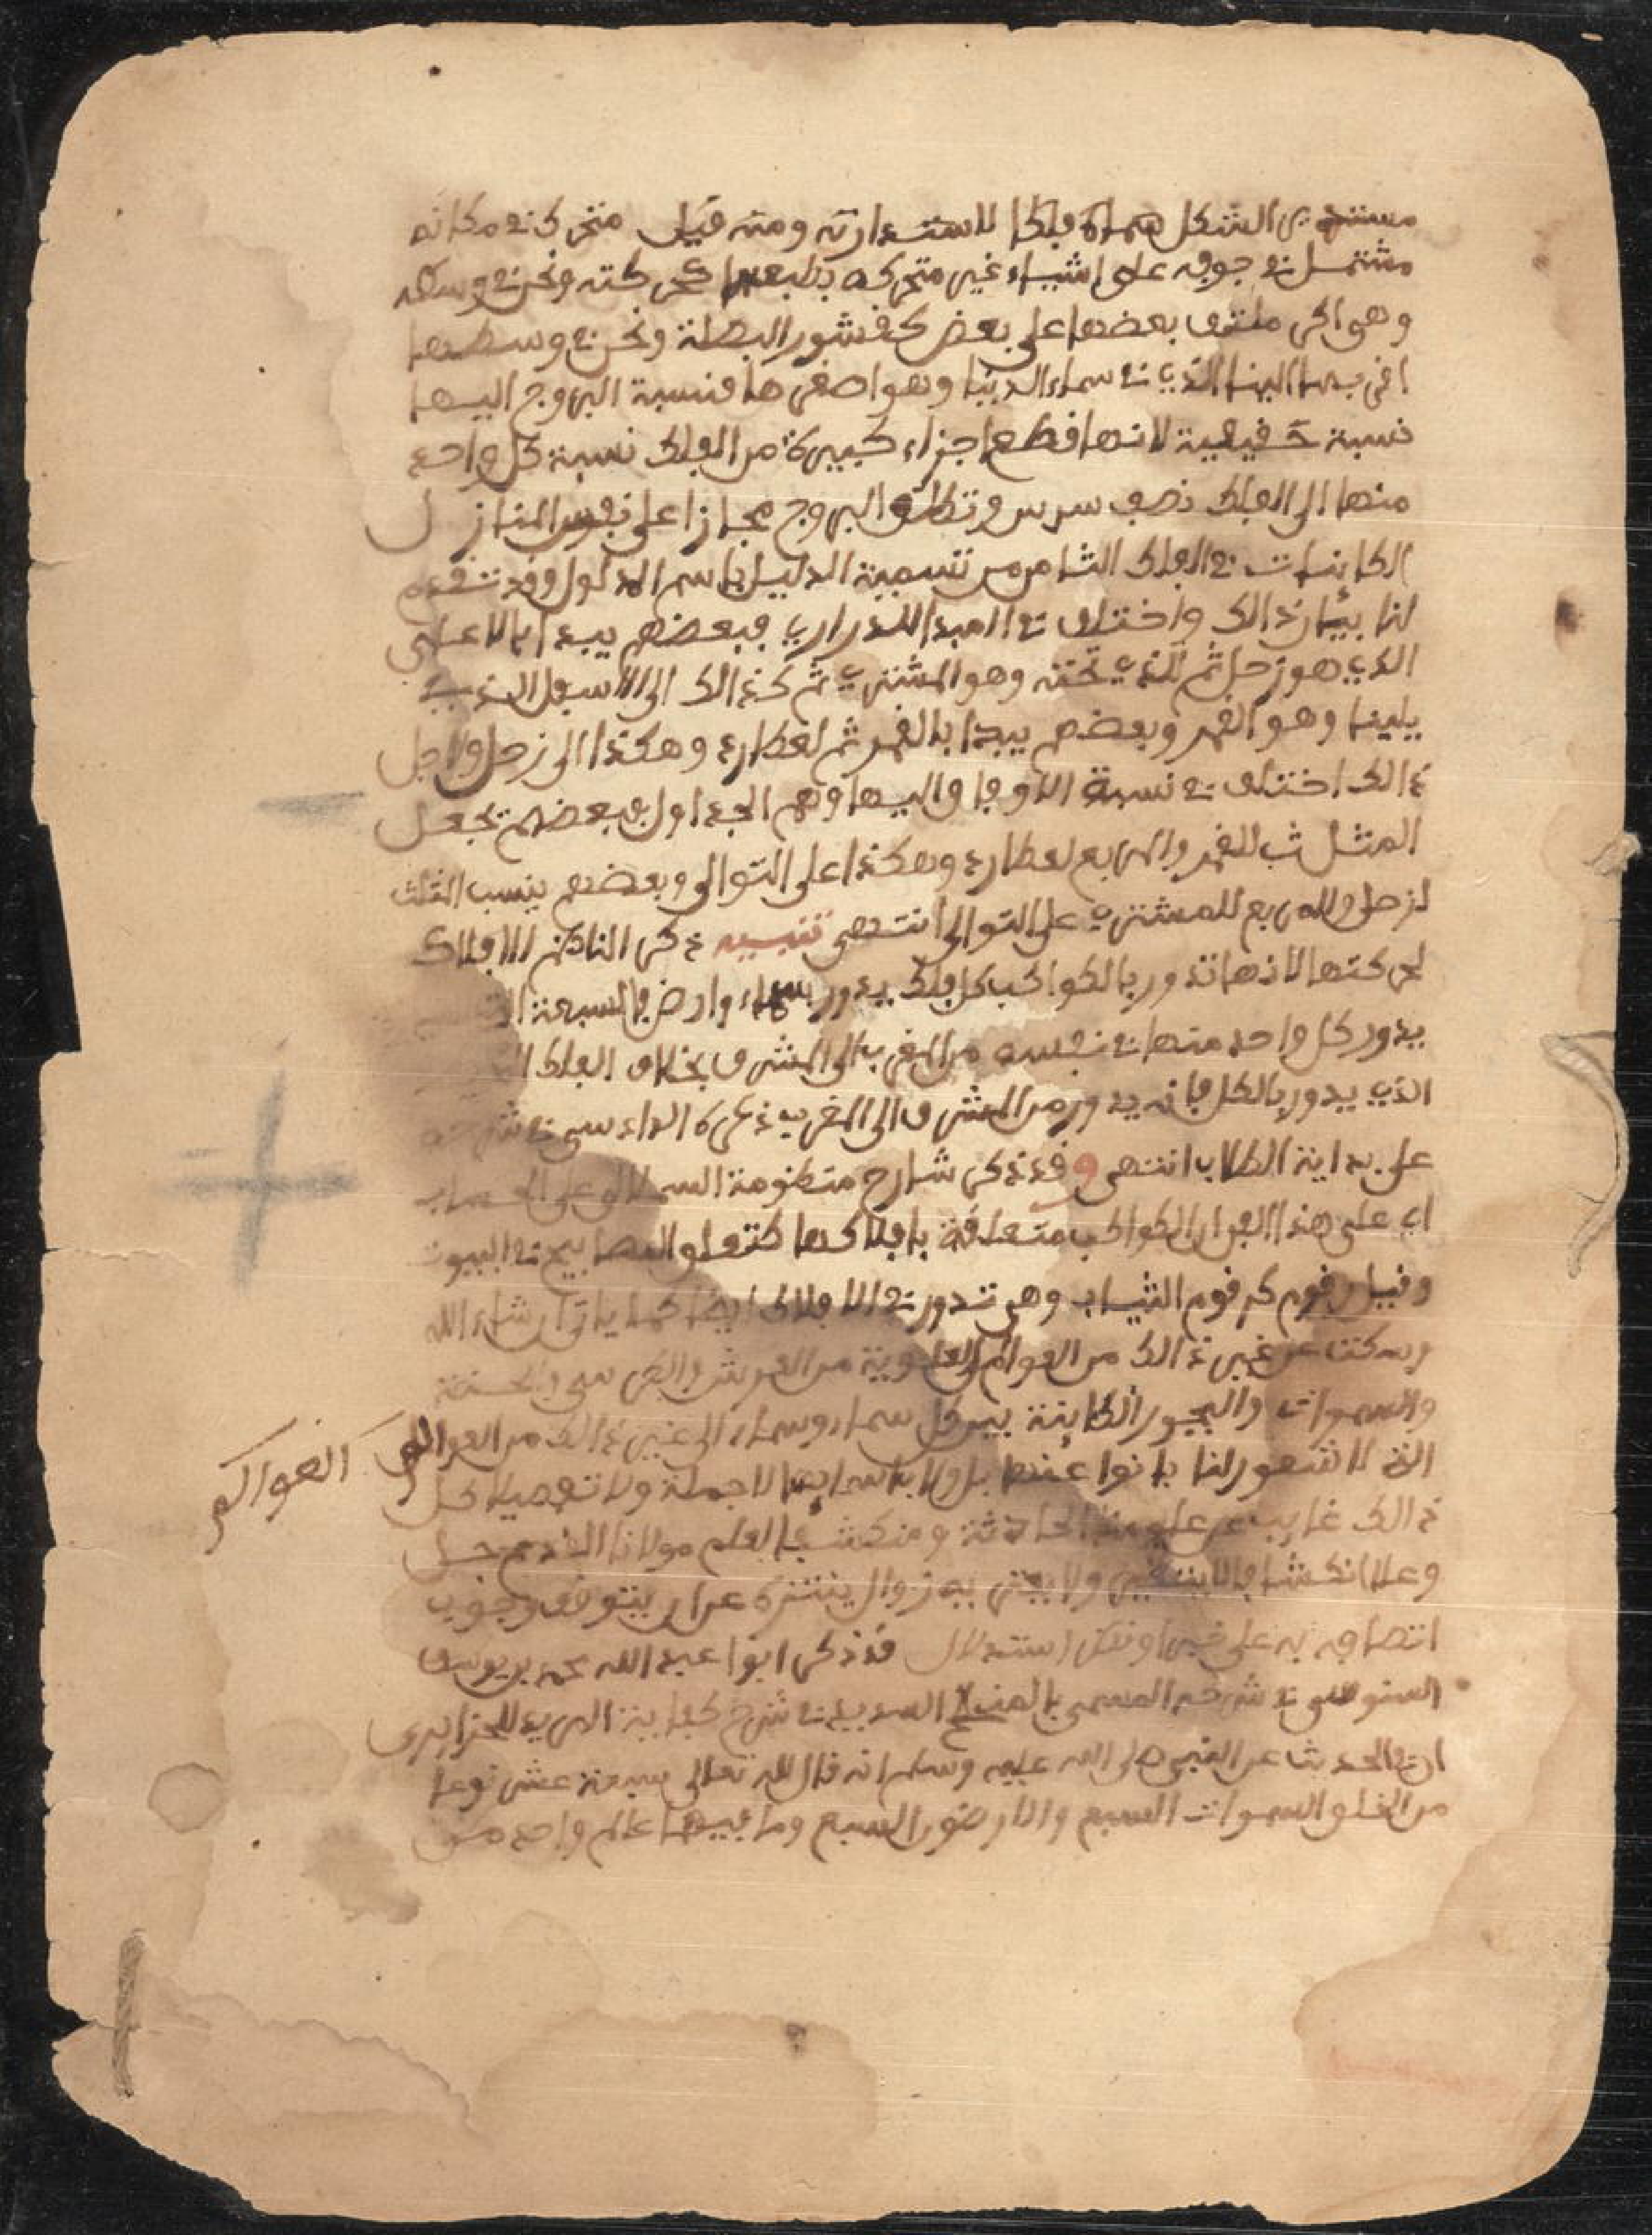 مستدير الشكل سماه فلكا لاستدارته ومنه قيل متحرك في مكانه
مشتمل في جوفه على اشياء غير متحركة بطبعها كحركته ونحن في وسطه
وهي اكر ملتف بعضها على بعض كقشور البصلة ونحن في وسطها
اقربها الينا الذي في سماء الدنيا وهو اصغرها فنسبة البروج اليها
نسبة حقيقية لانها قطع اجزاء كبيرة من الفلك نسبة كل واحد
منها الى الفلك نصف سدس وتطلق البروج مجازا على نفوس المنازل
الكاينات في الفلك الثامن من تسمية الدليل باسم المدلول وقد تقدم
لنا بيان ذالك واختلف في المبدا للدراري فبعضهم يبدا بالاعلى
الذي هو زحل ثم الذي تحته وهو المشتري ثم كذالك الى الاسفل الذي
يلينا وهو القمر وبعضهم يبدا بالقمر ثم لعطارد وهكذا الى زحل ولاجل
ذالك اختلف في نسبة الاوفاق اليها وهم الجداول فبعضهم يجعل
المثلث للقمر والمربع لعطارد وهكذا على التوالي وبعضهم ينسب المثلث
لزحل والمربع للمشتري على التوالي انتهى تنبيه ذكر الناظم الافلاك
لحركتها لانها تدور بالكواكب كل فلك يدور بسماء وارض فالسبعة
يدور كل واحد منها في نفسه من المغرب الى المشرق بخلاف الفلك
الذي يدور بالكل فانه يدور من المشرق الى المغرب ذكره الدادسي في شرحه
على بداية الطلاب انتهى وقد ذكر شارح منظومة السملالي على الحساب
اي على هذا الفن ان الكواكب متعلقة بافلاكها كتعلق المصابيح في البيوت
وقيل رقوم كرقوم الثياب وهي تدور في الافلاك ايضا كما ياتي ان شاء الله
وسكت عن غير ذالك من العوالم العلوية من العرش والكرسي والجنة
والسموات والبحور الكاينة بين كل سماء وسماء الى غير ذالك من العوالم العوالم
التي لا شعور لنا بانواعها بل ولا باسمايها لا جملة ولا تفصيلا كل
ذالك غايب عن علومنا الحادثة ومنكشف لعلم مولانا القديم جل
وعلا انكشافا لا يتغير ولا يعتريه زوال يتنزه عن ان يتوقف وجوب
اتصافه به على خبر او نظر استدلال قد ذكر ابوا عبد الله محمد بن يوسف
السنوسي في شرحه المسمى بالمنهج السديد في شرح كفاية المريد للجزايري
ان في الحديث عن النبي صلى الله عليه وسلم انه قال لله تعالى سبعة عشر نوعا
من الخلق السموات السبع والارضون السبع وما فيها عالم واحد من